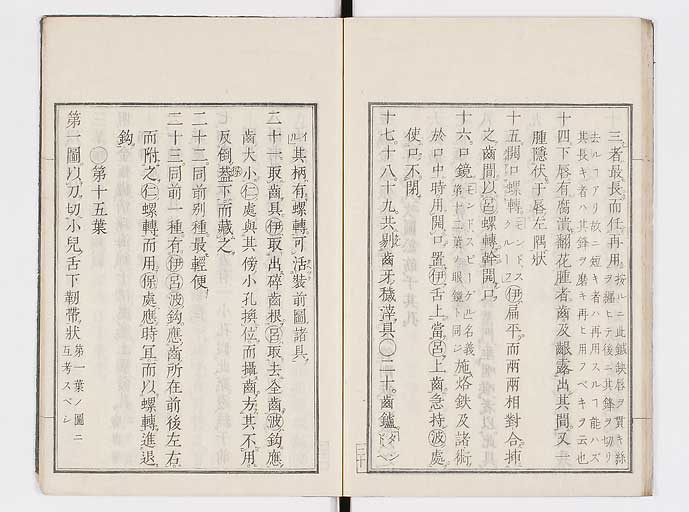 三者最長而任再用按ルニ此鍼缺唇ヲ貫キ絲
ヲ纒ヒテ後ニ其鋒ヲ切リ
去ルヿアリ故ニ短キ者ハ再用スルヿ能ハズ
其長キ者ハ其鋒ヲ磨キ再ヒ用フベキヲ云也
十四下唇有腐潰翻花腫者齒及齦露出其間又一
腫隱伏于唇左隅狀
十五開口螺轉モンドスクルーフ㋑伊扁平而兩兩相對合挿
之齒間以呂螺轉幹開口
十六口鏡モンドスピーゲル名義第十二葉ノ眼鏡ト同シ施烙鉄及諸術
於口中時用開口置伊舌上當呂上齒急持波處
使口不閉
十七十八十九共剔齒牙穢滓具○二十齒鑢
其柄有螺轉可活裝前圖諸具
二十一取齒具伊取出碎齒根呂取去全齒波鈎應
齒大小仁處與其傍小孔換位而攝齒方其不用
反倒蓋下而藏之
二十二同前别種最輕便
二十三同前一種有伊呂波鈎應齒所在前後左右
而附之仁螺轉而用保處應時宜而以螺轉進退
鈎
○第十五葉
第一圖以刀切小兒舌下靭帶狀第一葉ノ圖ニ
互考スベシ